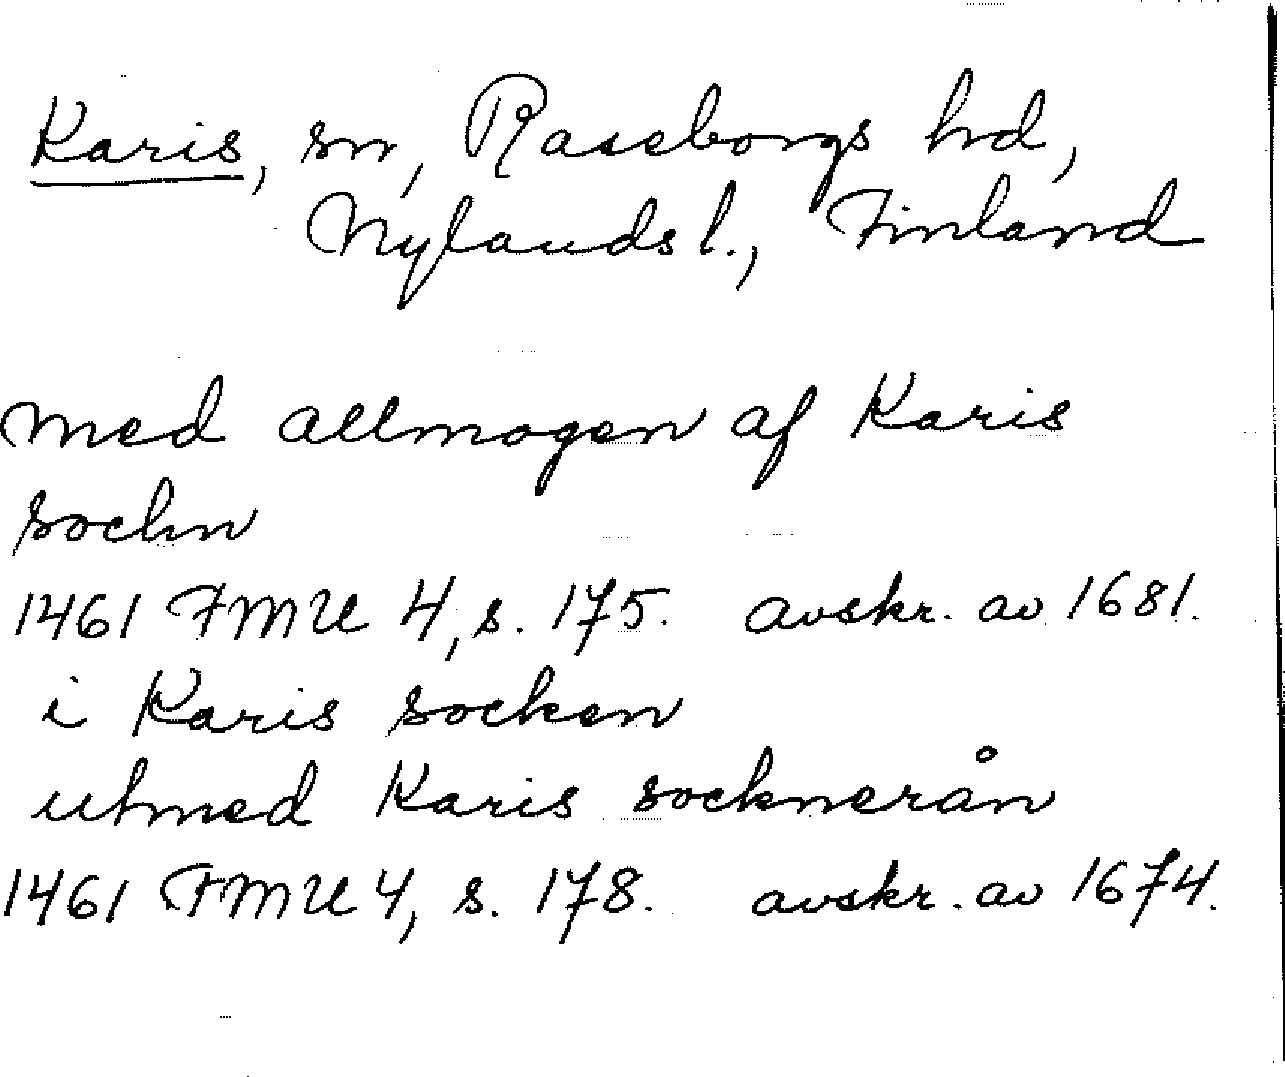 Karis, sn, Raseborgs hd,
Nylands l., Finland
med allmogen af Karis
sochn
1461 FMU 4, s. 175. avskr. av 1681.
i Karis socken
utmed Karis socknerån
1461 FMU 4, s. 178. avskr. av 1674.